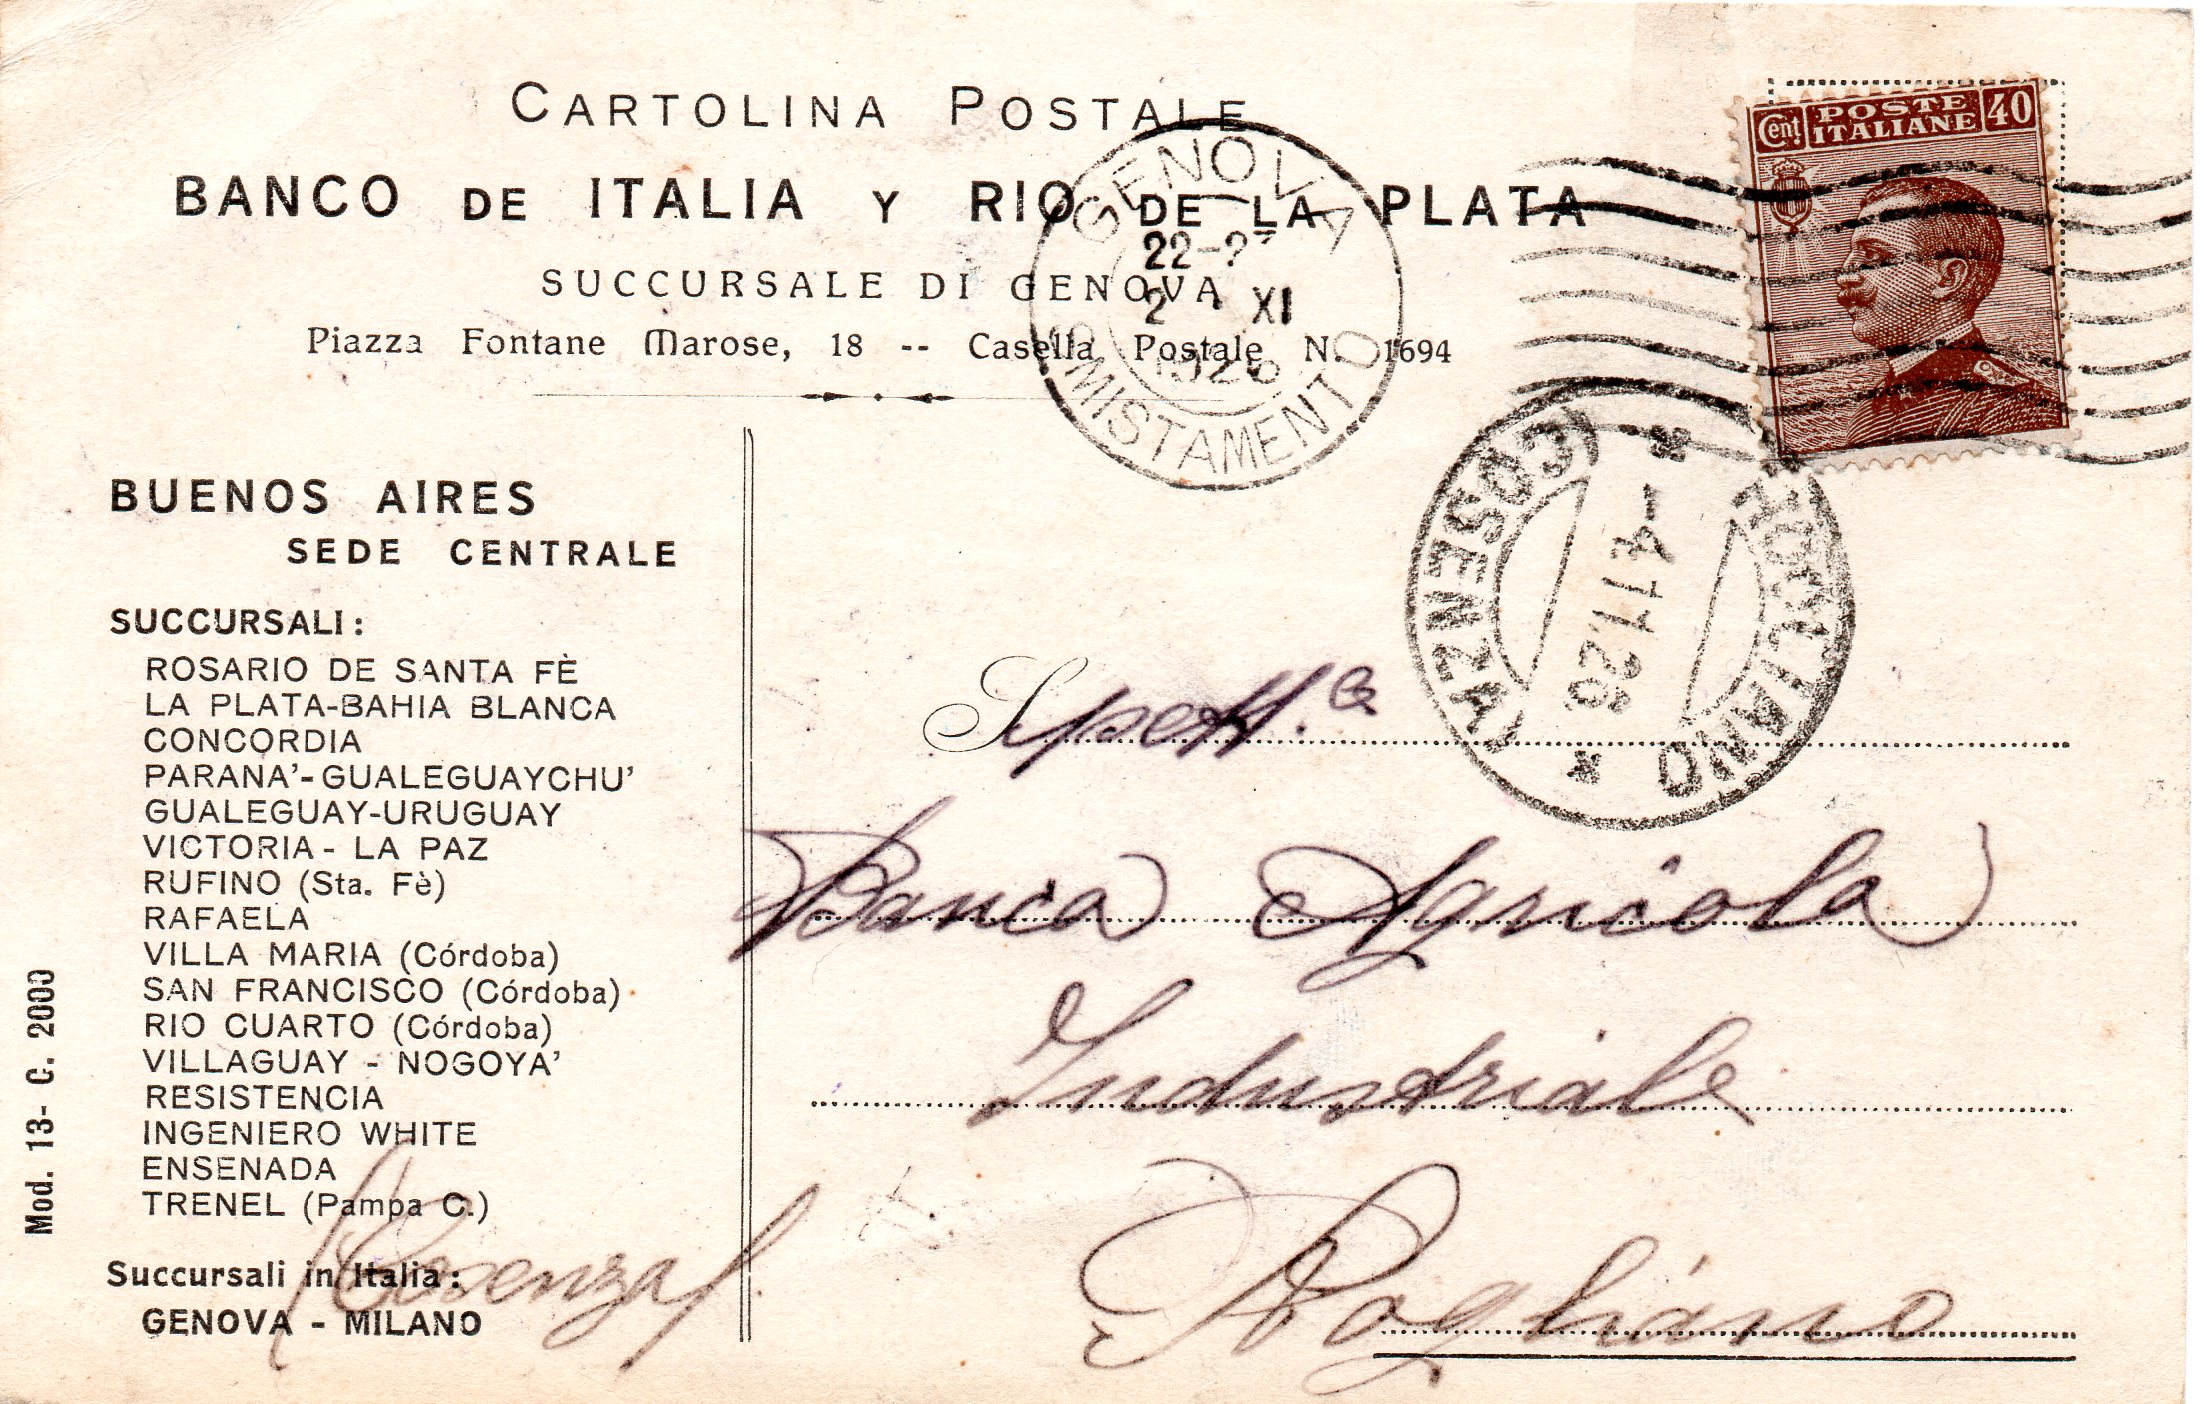 CARTOLINA POSTALE
BANCO DE ITALIA Y RIO DE LA PLATA
SUCCURSALE DI GENOVA
Piazza Fontane Marose, 18 -- Casella Postale N. 1694
Cent POSTE ITALIANE 40
GENOVA
22-2
2 XI
1926
SMISTAMENTO
COSENZA
-4.11.26
BUENOS AIRES
SEDE CENTRALE
SUCCURSALI:
ROSARIO DE SANTA FÈ
LA PLATA-BAHIA BLANCA
CONCORDIA
PARANA'-GUALEGUAYCHU'
GUALEGUAY-URUGUAY
VICTORIA - LA PAZ
RUFINO (Sta. Fè)
RAFAELA
VILLA MARIA (Córdoba)
SAN FRANCISCO (Córdoba)
RIO CUARTO (Córdoba)
VILLAGUAY - NOGOYA'
RESISTENCIA
INGENIERO WHITE
ENSENADA
TRENEL (Pampa C.)
Succursali in Italia:
GENOVA - MILANO
Mod. 13- C. 2000
Spett.e
Banca Agricola
Industriale
Rogliano
(Cosenza)